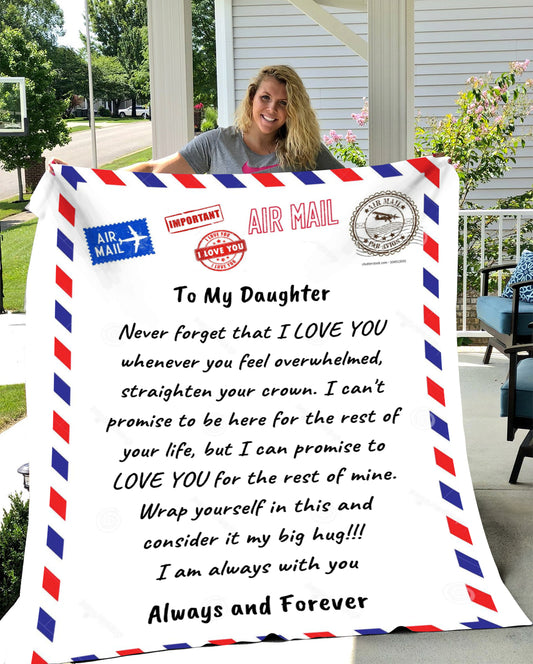 AIR
MAIL
IMPORTANT
I LOVE YOU
I LOVE YOU
I LOVE YOU
AIR MAIL
AIR MAIL
PAR AVION
To My Daughter
Never forget that I LOVE YOU
whenever you feel overwhelmed,
straighten your crown. I can't
promise to be here for the rest of
your life, but I can promise to
LOVE YOU for the rest of mine.
Wrap yourself in this and
consider it my big hug!!!
I am always with you
Always and Forever